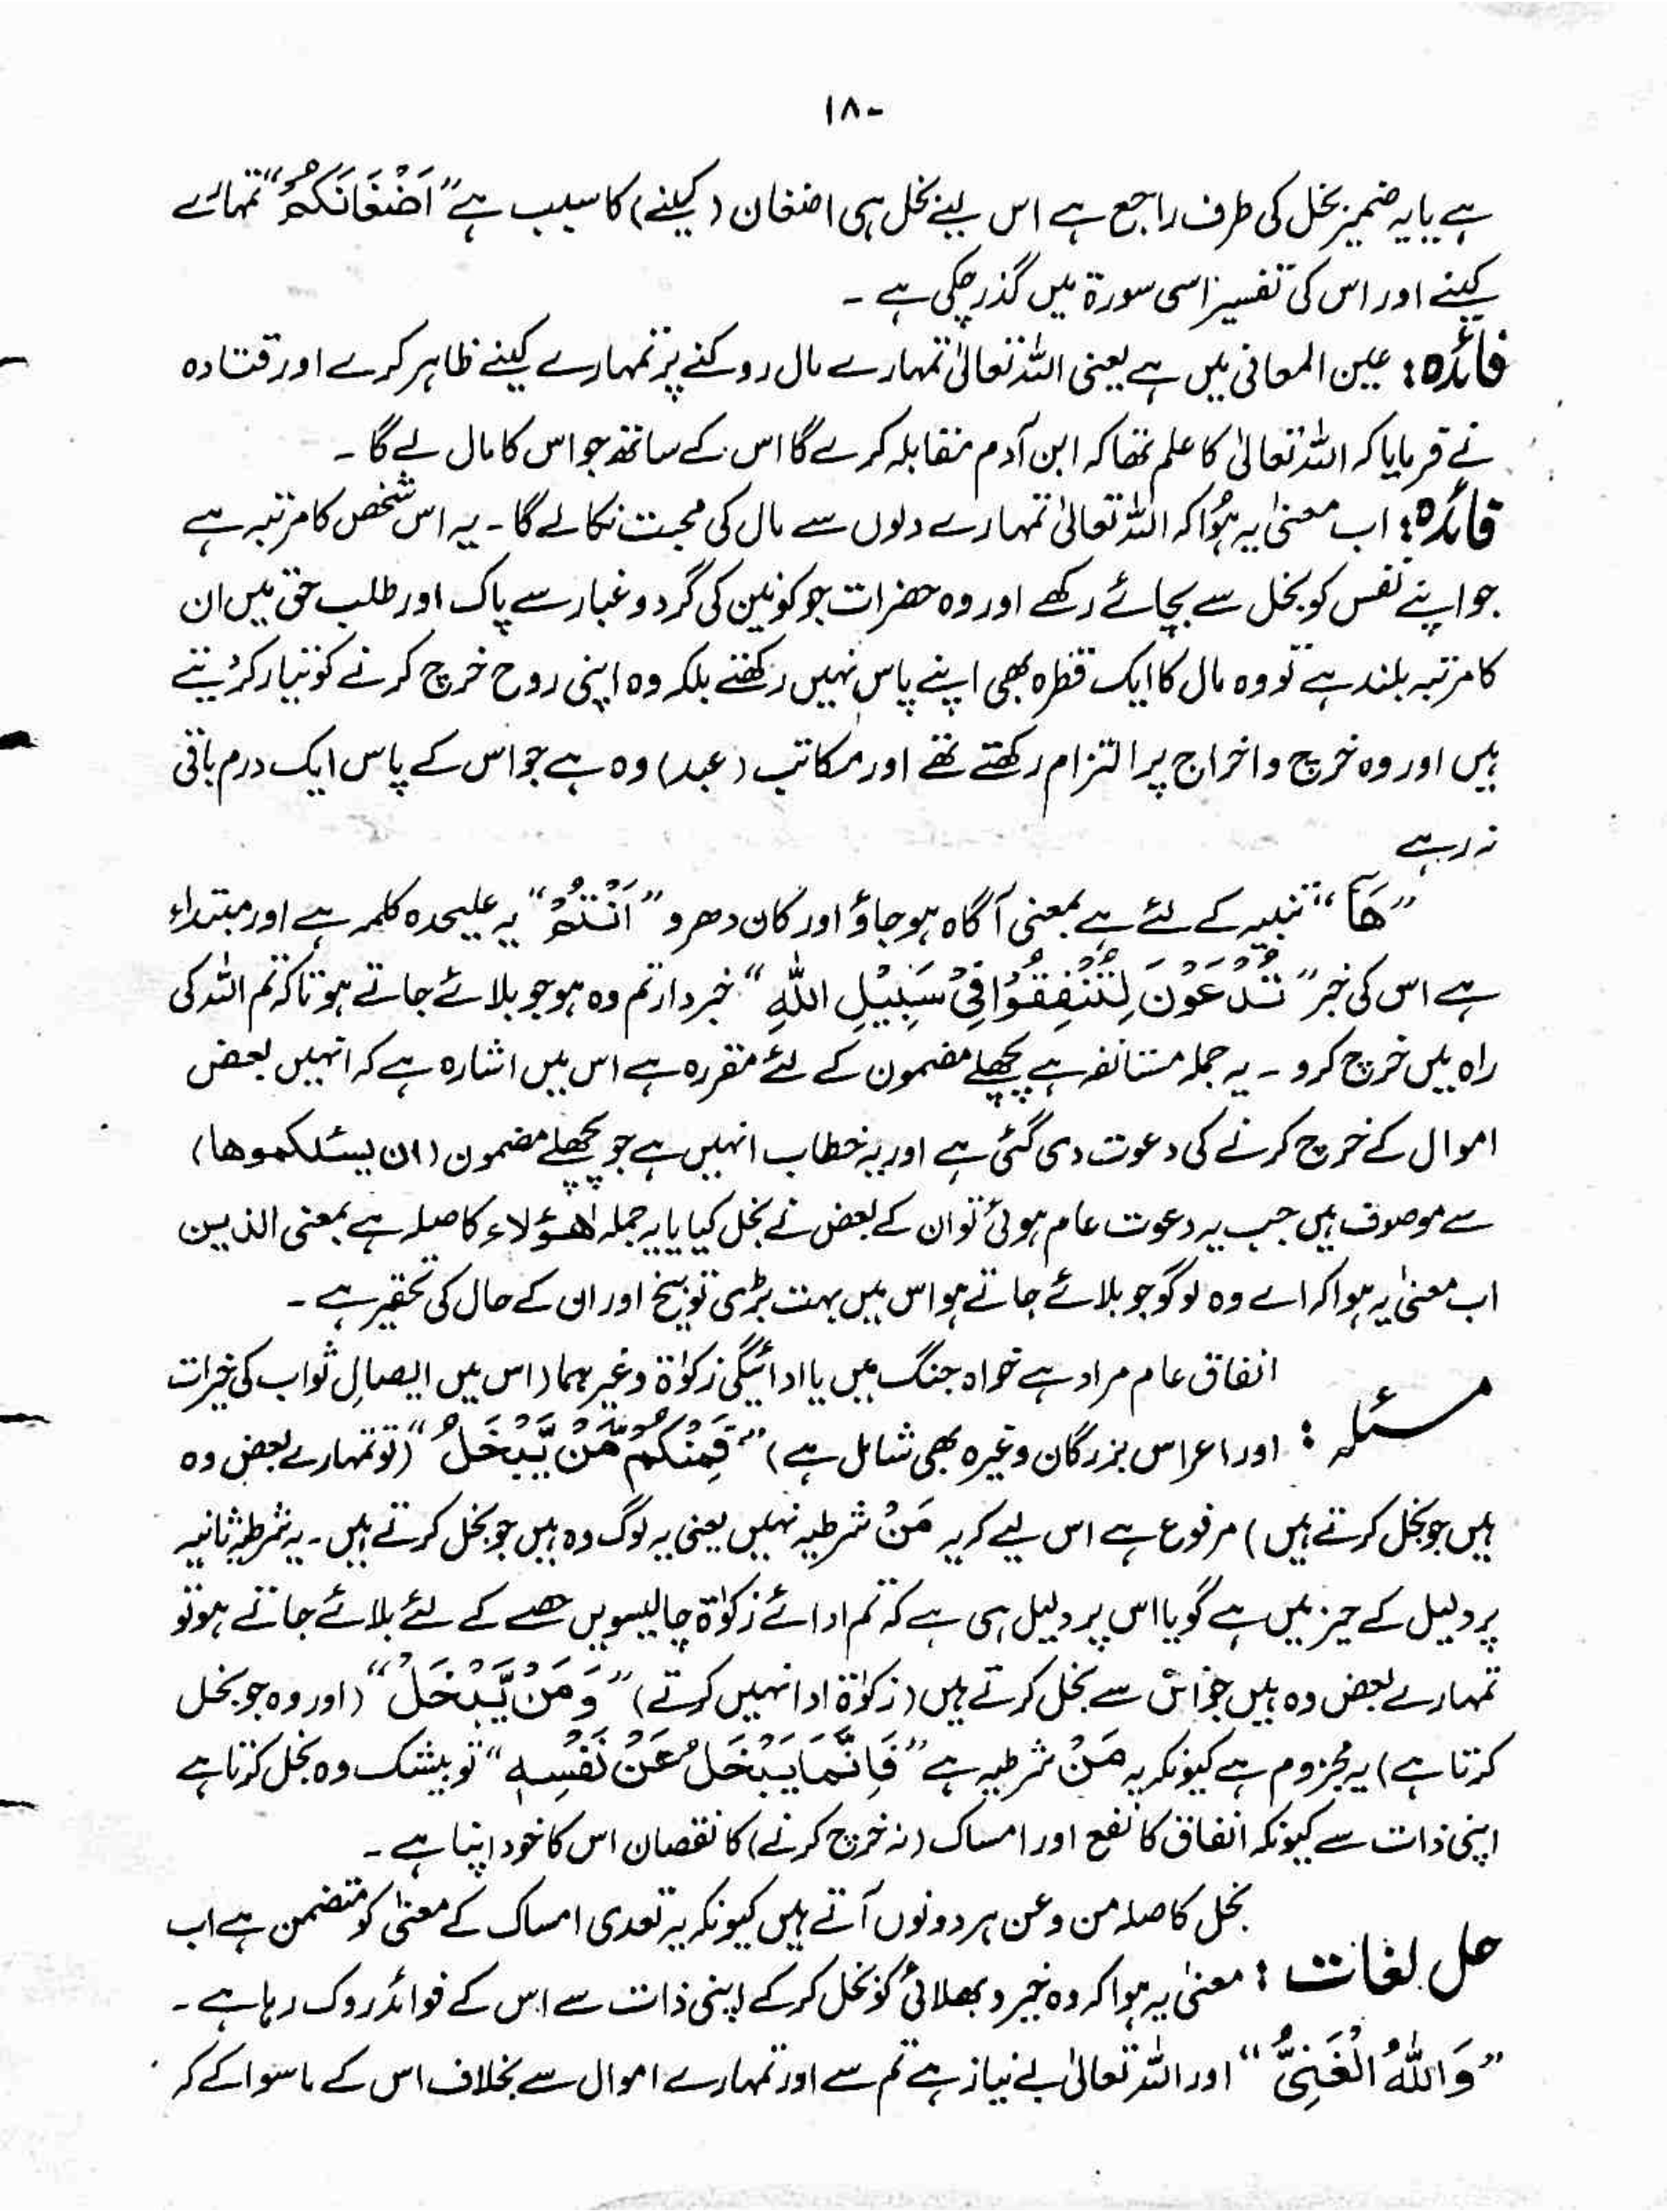 ۱۸۰
ہے یا یہ ضمیر بخل کی طرف راجع ہے اس لیے بخل ہی اضغان (کینے) کا سبب ہے "اَضْغَانَكُمْ" تمہارے
کینے اور اس کی تفسیر اسی سورۃ میں گذر چکی ہے ۔
فائدہ : عین المعانی میں ہے یعنی اللہ تعالیٰ تمہارے مال روکنے پر تمہارے کینے ظاہر کرے اور قتادہ
نے فرمایا کہ اللہ تعالیٰ کا علم تھا کہ ابن آدم مقابلہ کرے گا اس کے ساتھ جو اس کا مال لے گا ۔
فائدہ : اب معنیٰ یہ ہُوا کہ اللہ تعالیٰ تمہارے دلوں سے مال کی محبت نکالے گا ۔ یہ اس شخص کا مرتبہ ہے
جو اپنے نفس کو بخل سے بچائے رکھے اور وہ حضرات جو کونین کی گرد و غبار سے پاک اور طلب حق میں ان
کا مرتبہ بلند ہے تو وہ مال کا ایک قطرہ بھی اپنے پاس نہیں رکھتے بلکہ وہ اپنی روح خرچ کرنے کو تیار کر دیتے
ہیں اور وہ خرچ و اخراج پر التزام رکھتے تھے اور مکاتب (عبد) وہ ہے جو اس کے پاس ایک درم باقی
نہ رہے
"هَآ" تنبیہ کے لئے ہے بمعنی آگاہ ہو جاؤ اور کان دھرو "اَنْتُمْ" یہ علیحدہ کلمہ ہے اور مبتداء
ہے اس کی خبر "تُدْعَوْنَ لِتُنْفِقُوْا فِيْ سَبِيْلِ اللهِ" خبردار تم وہ ہو جو بلائے جاتے ہو تاکہ تم اللہ کی
راہ میں خرچ کرو ۔ یہ جملہ مستانفہ ہے پچھلے مضمون کے لئے مقررہ ہے اس میں اشارہ ہے کہ انہیں بعض
اموال کے خرچ کرنے کی دعوت دی گئی ہے اور یہ خطاب انہیں ہے جو پچھلے مضمون (ان یسئلکموھا)
سے موصوف ہیں جب یہ دعوت عام ہوئی تو ان کے بعض نے بخل کیا یا یہ جملہ ھٰؤلاء کا صلہ ہے بمعنی الذین
اب معنیٰ یہ ہوا کہ اے وہ لوگو جو بلائے جاتے ہو اس میں بہت بڑی توبیخ اور ان کے حال کی تحقیر ہے ۔
مسئلہ : انفاق عام مراد ہے خواہ جنگ میں یا ادائیگی زکوٰۃ وغیرہما (اس میں ایصالِ ثواب کی خیرات
اور اعراس بزرگان وغیرہ بھی شامل ہے) "فَمِنْكُمْ مَّنْ يَّبْخَلُ" (تو تمہارے بعض وہ
ہیں جو بخل کرتے ہیں) مرفوع ہے اس لیے کہ یہ مَنْ شرطیہ نہیں یعنی یہ لوگ وہ ہیں جو بخل کرتے ہیں ۔ یہ شرطیہ ثانیہ
پر دلیل کے حیز میں ہے گویا اس پر دلیل ہی ہے کہ تم ادائے زکوٰۃ چالیسویں حصے کے لئے بلائے جاتے ہو تو
تمہارے بعض وہ ہیں جو اس سے بخل کرتے ہیں (زکوٰۃ ادا نہیں کرتے) "وَمَنْ يَّبْخَلْ" (اور وہ جو بخل
کرتا ہے) یہ مجزوم ہے کیونکہ یہ مَنْ شرطیہ ہے "فَاِنَّمَا يَبْخَلُ عَنْ نَفْسِهٖ" تو بیشک وہ بخل کرتا ہے
اپنی ذات سے کیونکہ انفاق کا نفع اور امساک (نہ خرچ کرنے) کا نقصان اس کا خود اپنا ہے ۔
حل لغات : بخل کا صلہ من و عن ہر دونوں آتے ہیں کیونکہ یہ تعدی امساک کے معنیٰ کو متضمن ہے اب
معنیٰ یہ ہوا کہ وہ خیر و بھلائی کو بخل کر کے اپنی ذات سے اس کے فوائد روک رہا ہے ۔
"وَاللهُ الْغَنِيُّ" اور اللہ تعالیٰ بے نیاز ہے تم سے اور تمہارے اموال سے بخلاف اس کے ماسوا کے کہ